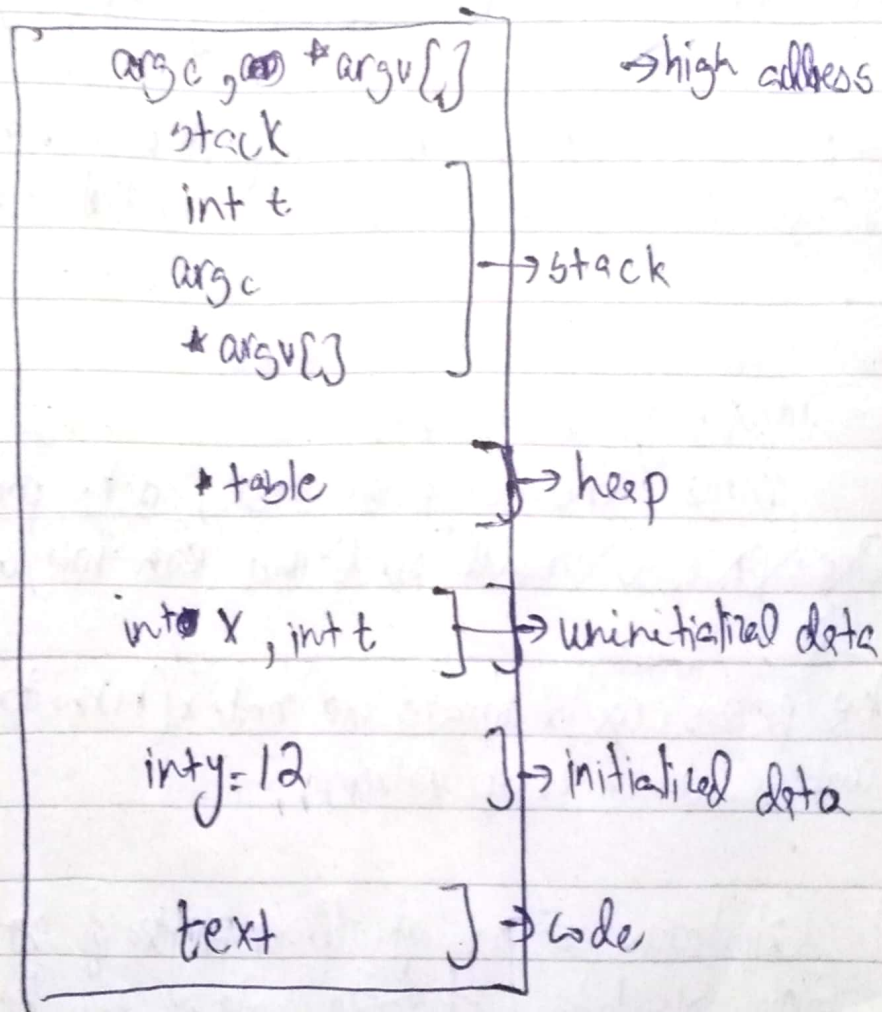 argc, *argv[] →high address
stack
int t
argc →stack
*argv[]
*table → heap
int x, int t → uninitialized data
int y=12 → initialized data
text → code